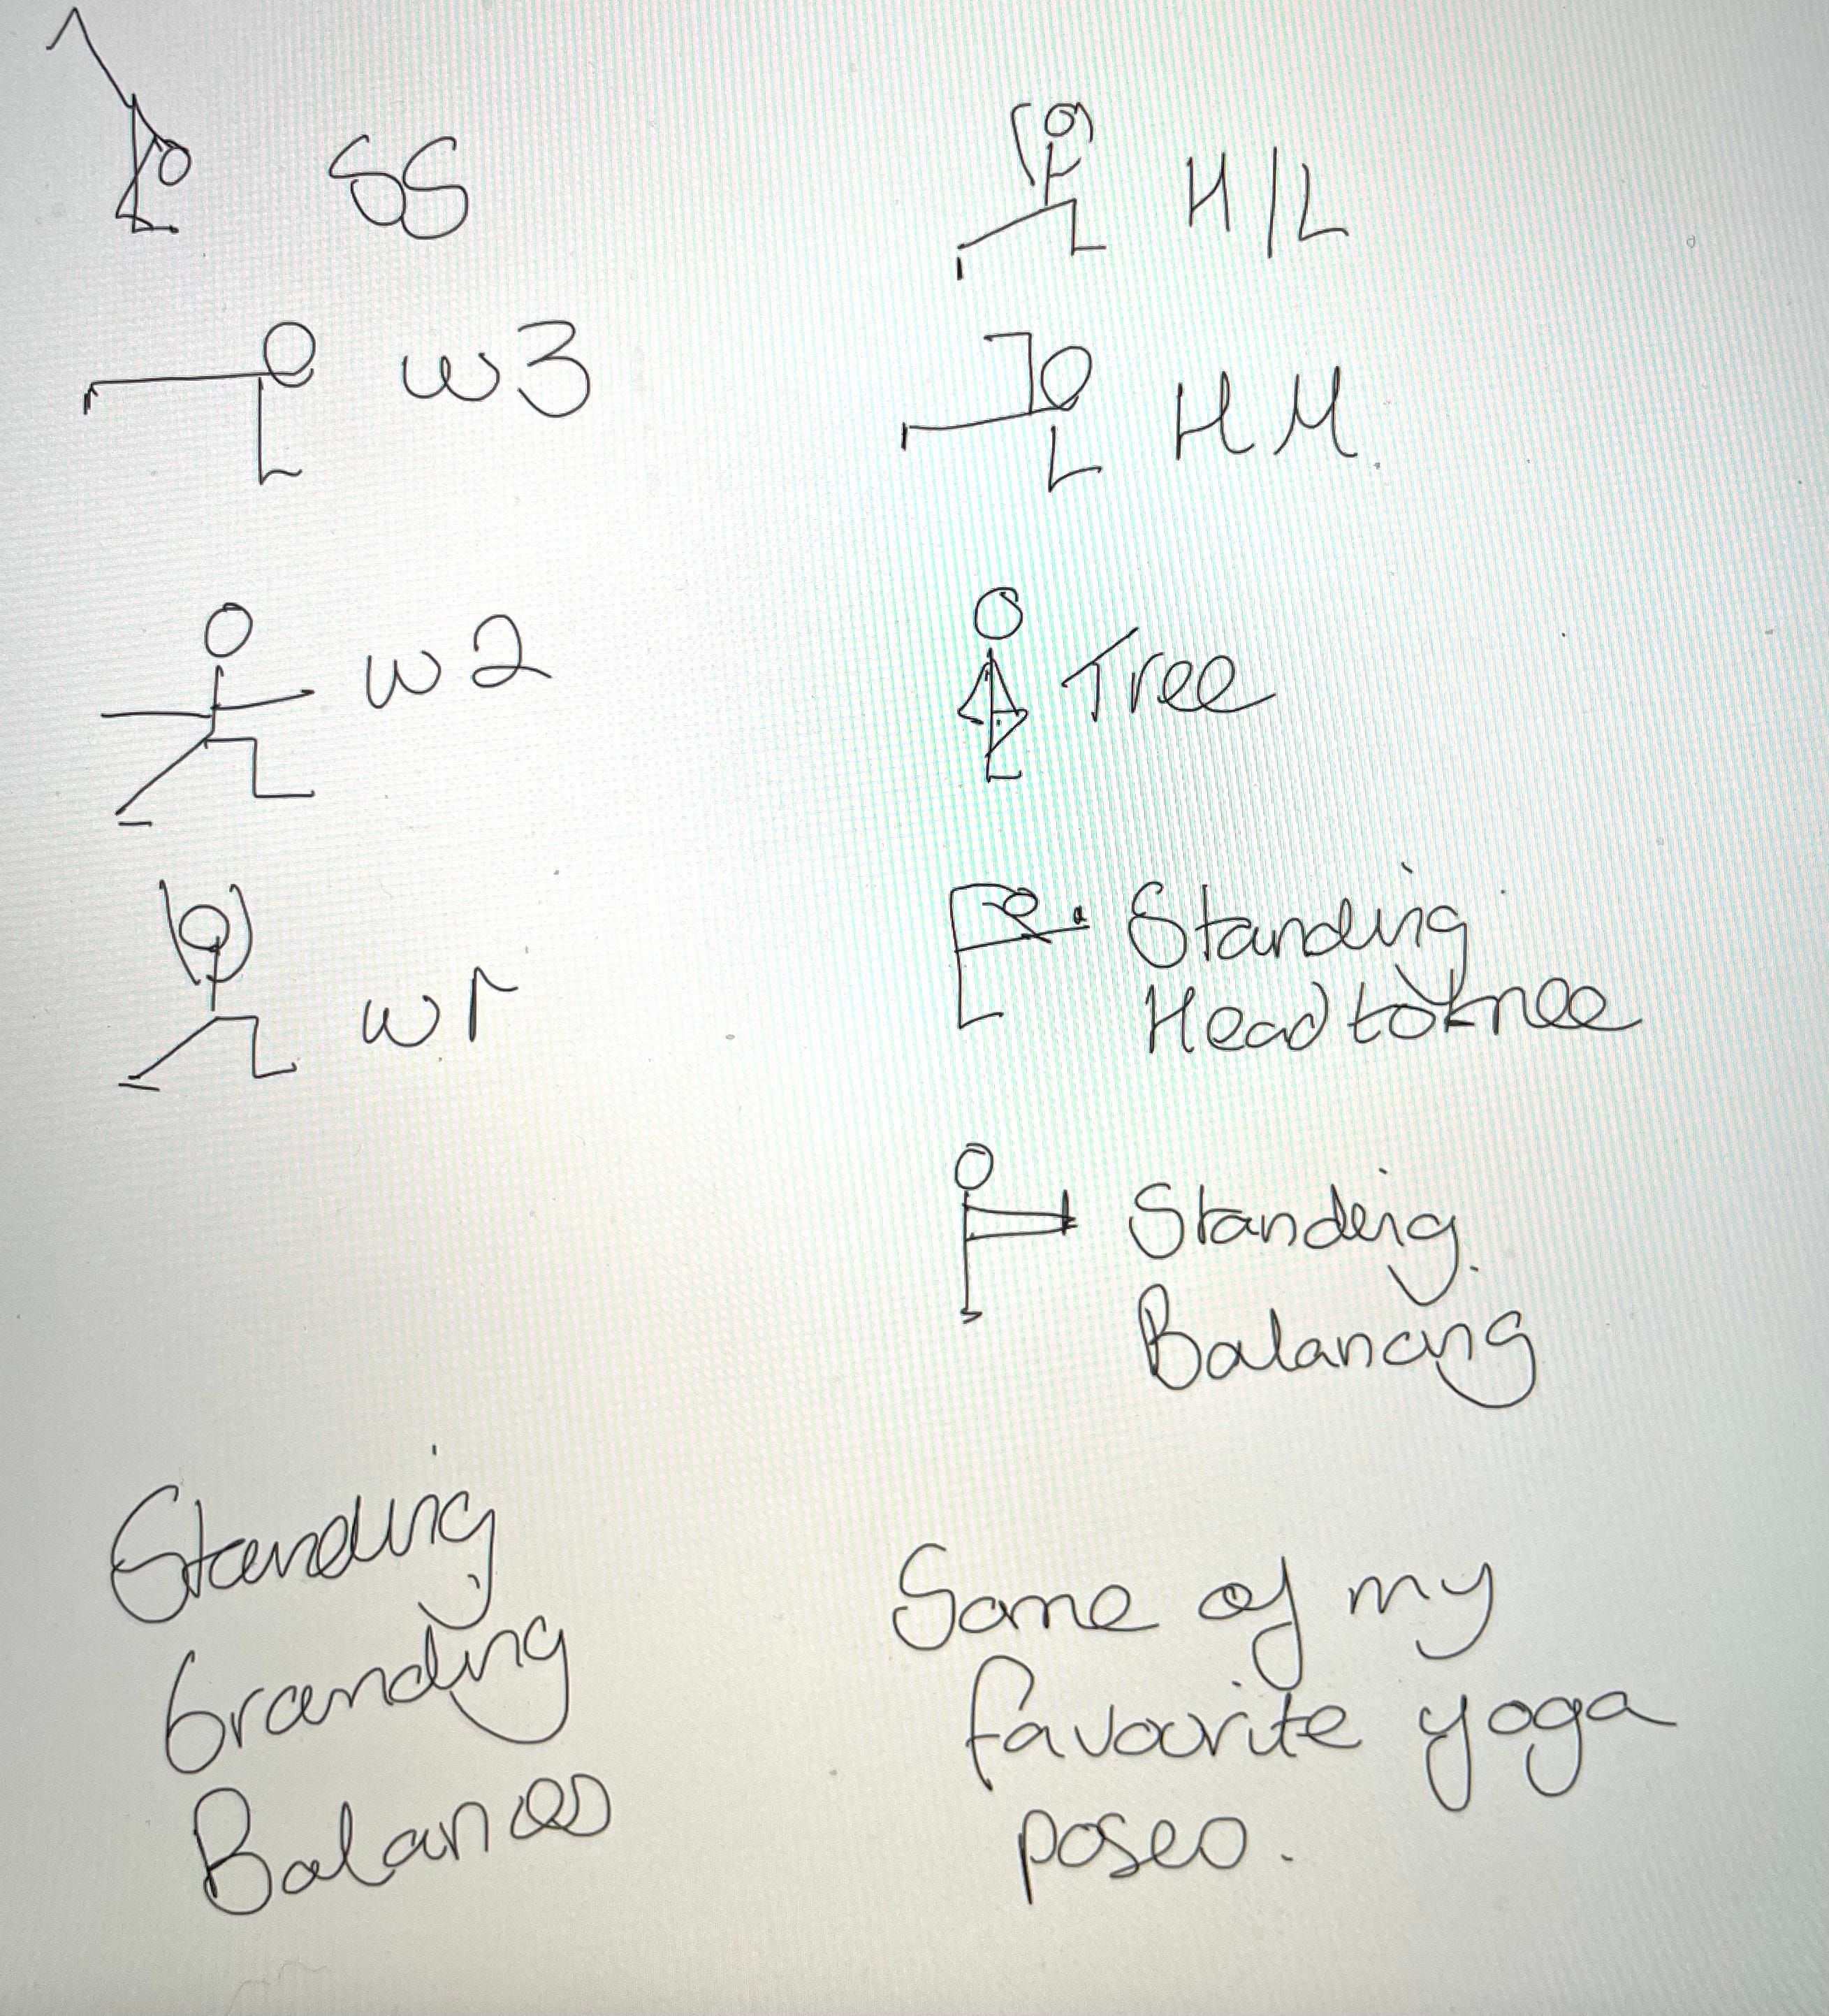 SS
W3
W2
W1
H/L
HM
Tree
Standing
Head to knee
Standing
Balancing
Standing
Granding
Balances
Some of my
favourite yoga
poses.